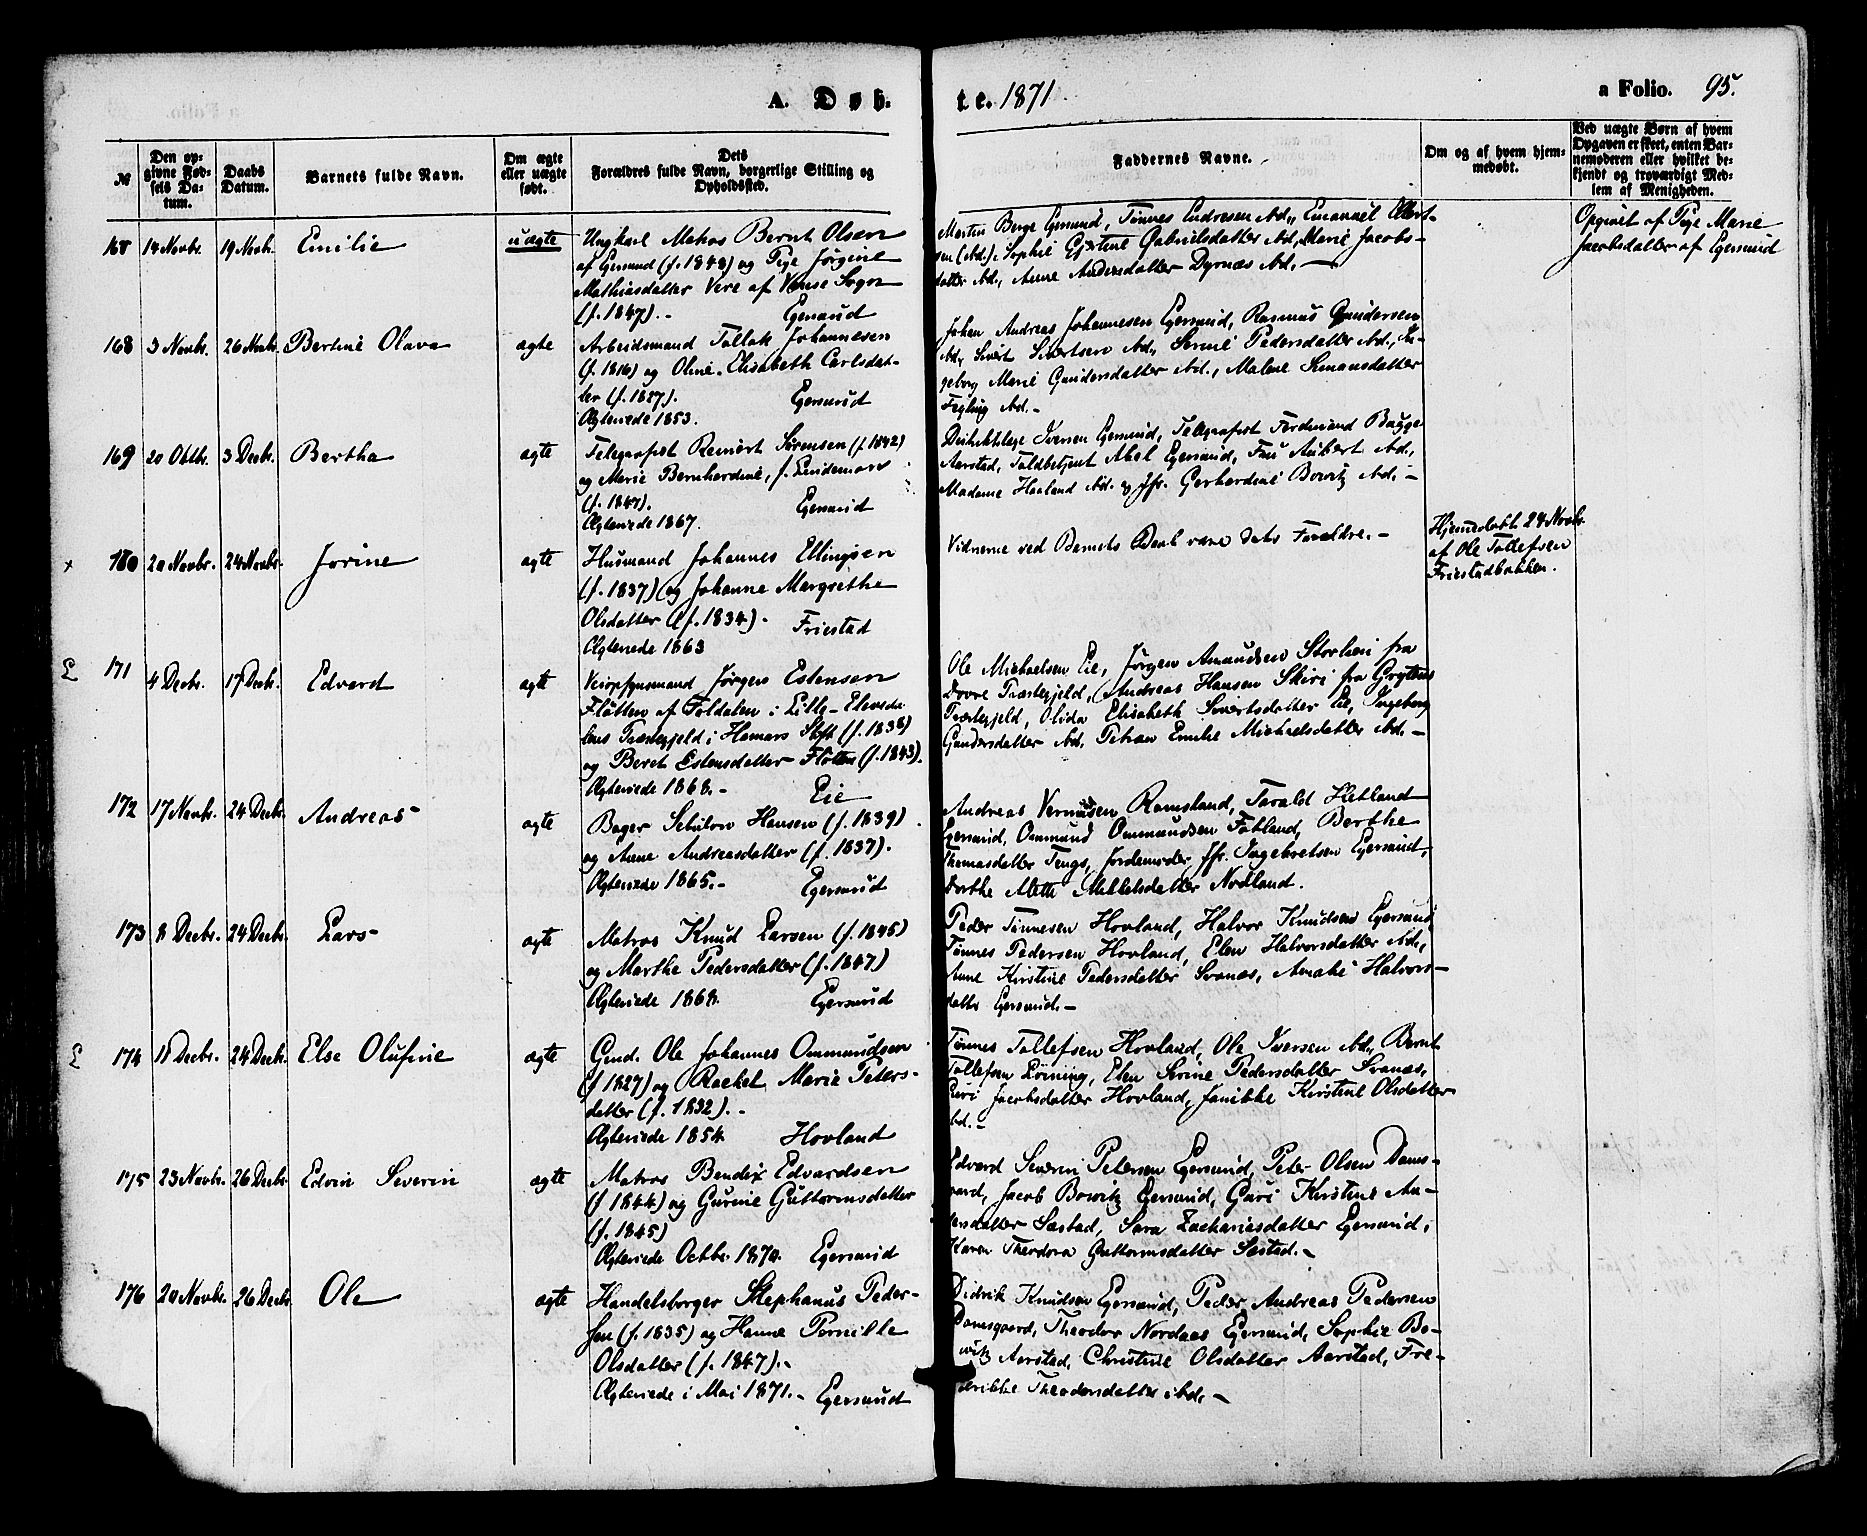 A. Døb-
te. 1871.
a Folio. 95.
№
Den op-
givne Fød-
sels Da-
tum.
Daabs
Datum.
Barnets fulde Navn.
Om ægte
eller uægte
født.
Dets
Forældres fulde Navn, borgerlige Stilling og
Opholdssted.
Faddernes Navne.
Om og af hvem hjem-
medøbt.
Ved uægte Børn af hvem
Opgaven er skeet, enten Bar-
nemoderen eller hvilket be-
kjendt og troværdigt Med-
lem af Menigheden.
168 14 Novbr. 19 Novb. Emilie uægte
Ungkarl Matros Bernt Olsen
af Egersund (f. 1848) og Pige Jørgine
Mathiasdatter Vere af Vanse Sogn
(f. 1847).- Egersund
Martin Berge Egersund, Tønnes Endresen ibd., Emanuel
sen (ibd.), Sophie Gabrielsdatter ibd., Marie Jacobs-
datter ibd., Anne Andersdatter Dyrnæs ibd. —
Opgivet af Pige Marie
Jacobsdatter af Egersund
168 3 Novbr. 26 Novb. Bertine Olava ægte
Arbeidsmand Tollak Johannesen
(f. 1816) og Oline Elisabeth Carlsdat-
ter (f. 1827). Egersund
Ægteviede 1853.
Johan Andreas Johannesen Egersund, Rasmus Gundersen
ibd., Sivert Sivertsen ibd., Serine Pedersdatter ibd., In-
geborg Marie Gundersdatter ibd., Malene Simonsdatter
ibd.-
169 20 Oktbr. 3 Decbr. Bertha ægte
Telegrafist Reinert Sørensen (f. 1842)
og Marie Bernhardine, f. Lindeman
(f. 1847). Egersund
Ægteviede 1867.
Iversen Egersund, Telegrafist Ferdinand Bugge
Aarstad, Toldbetjent Abel Egersund, Fru Aubert ibd.,
Madame Haaland ibd. og Jfr. Gerhardine Bowitz ibd.-
x 170 20 Novbr. 24 Novbr. Jorine ægte
Husmand Johannes Ellingsen
(f. 1837) og Johanne Margrethe
Olsdatter (f. 1834). Friestad
Ægteviede 1863
Vidnerne ved Barnets Daab vare dets Forældre.-
Hjemmedøbt 24 Novbr.
af Ole Tollefsen
Friestadbakken.
171 4 Decbr. 17 Decb. Edvard ægte
Veiopsynsmand Jørgen Estensen
Fløtten af Foldalen i Lille-Elveda-
lens Præstegjeld i Hamars Stift (f. 1838)
og Beret Estensdatter Fløtten (f. 1843).
Ægteviede 1868.- Eie
Ole Michaelsen Eie, Jørgen Amundsen Storlien fra
Dovre Præstegjeld, Andreas Hansen Skiri fra Gryttens
Præstegjeld, Olida Elisabeth Sivertsdatter Eie, Ingeborg
Gundersdatter ibd., Petrea Emilie Michaelsdatter ibd.-
172 17 Novbr. 24 Decbr. Andreas ægte
Bager Sebulon Hansen (f. 1839)
og Anne Andreasdatter (f. 1837).
Ægteviede 1865.- Egersund
Andreas Ramsland, Tarald Hetland
Egersund, Ommund Ommundsen Fotland, Berthe
Thomasdatter Tengs, Jordemoder Jfr. Ingebretsen Egersund,
Dorthe Mette Mikkelsdatter Nodland.
173 8 Decbr. 24 Decbr. Lars ægte
Matros Knud Larsen (f. 1845)
og Marthe Pedersdatter (f. 1847)
Ægteviede 1868. Egersund
Peder Tønnesen Hovland, Halvor Knudsen Egersund,
Tønnes Pedersen Hovland, Elen Halvorsdatter ibd.,
Anne Kirstine Pedersdatter Svanæs, Amalie Halvors-
datter Egersund.-
174 11 Decbr. 24 Decb. Else Olufine ægte
Gmd. Ole Johannes Ommundsen
(f. 1827) og Rachel Marie Peters-
datter (f. 1832).-
Ægteviede 1854 Hovland
Tønnes Tollefsen Hovland, Ole Iversen ibd., Bernt
Tollefsen Løining, Elen Serine Pedersdatter Svanæs,
Guri Jacobsdatter Hovland, Janikke Kirstine Olsdatter
ibd.-
175 23 Novbr. 26 Decbr. Edvin Severin ægte
Matros Bendix Edvardsen
(f. 1844) og Gurine Guttormsdatter
(f. 1845)
Ægteviede Octbr. 1870. Egersund
Edvard Severin Petersen Egersund, Peter Olsen Dams-
gaard, Jacob Bowitz Egersund, Guri Kirstine An-
dersdatter Sæstad, Sara Zachariasdatter Egersund,
Karen Theodora Guttormsdatter Sæstad.-
176 20 Novbr. 26 Decbr. Ole ægte
Handelsborger Stephanus Peder-
sen (f. 1835) og Hanne Pernille
Olsdatter (f. 1847).-
Ægteviede i Mai 1871.- Egersund
Didrik Knudsen Egersund, Peder Andreas Pedersen
Damsgaard, Theodor Nordaas Egersund, Sophie Bo-
witz Aarstad, Christine Olsdatter Aarstad, Fre-
drikke Theodorsdatter ibd.-